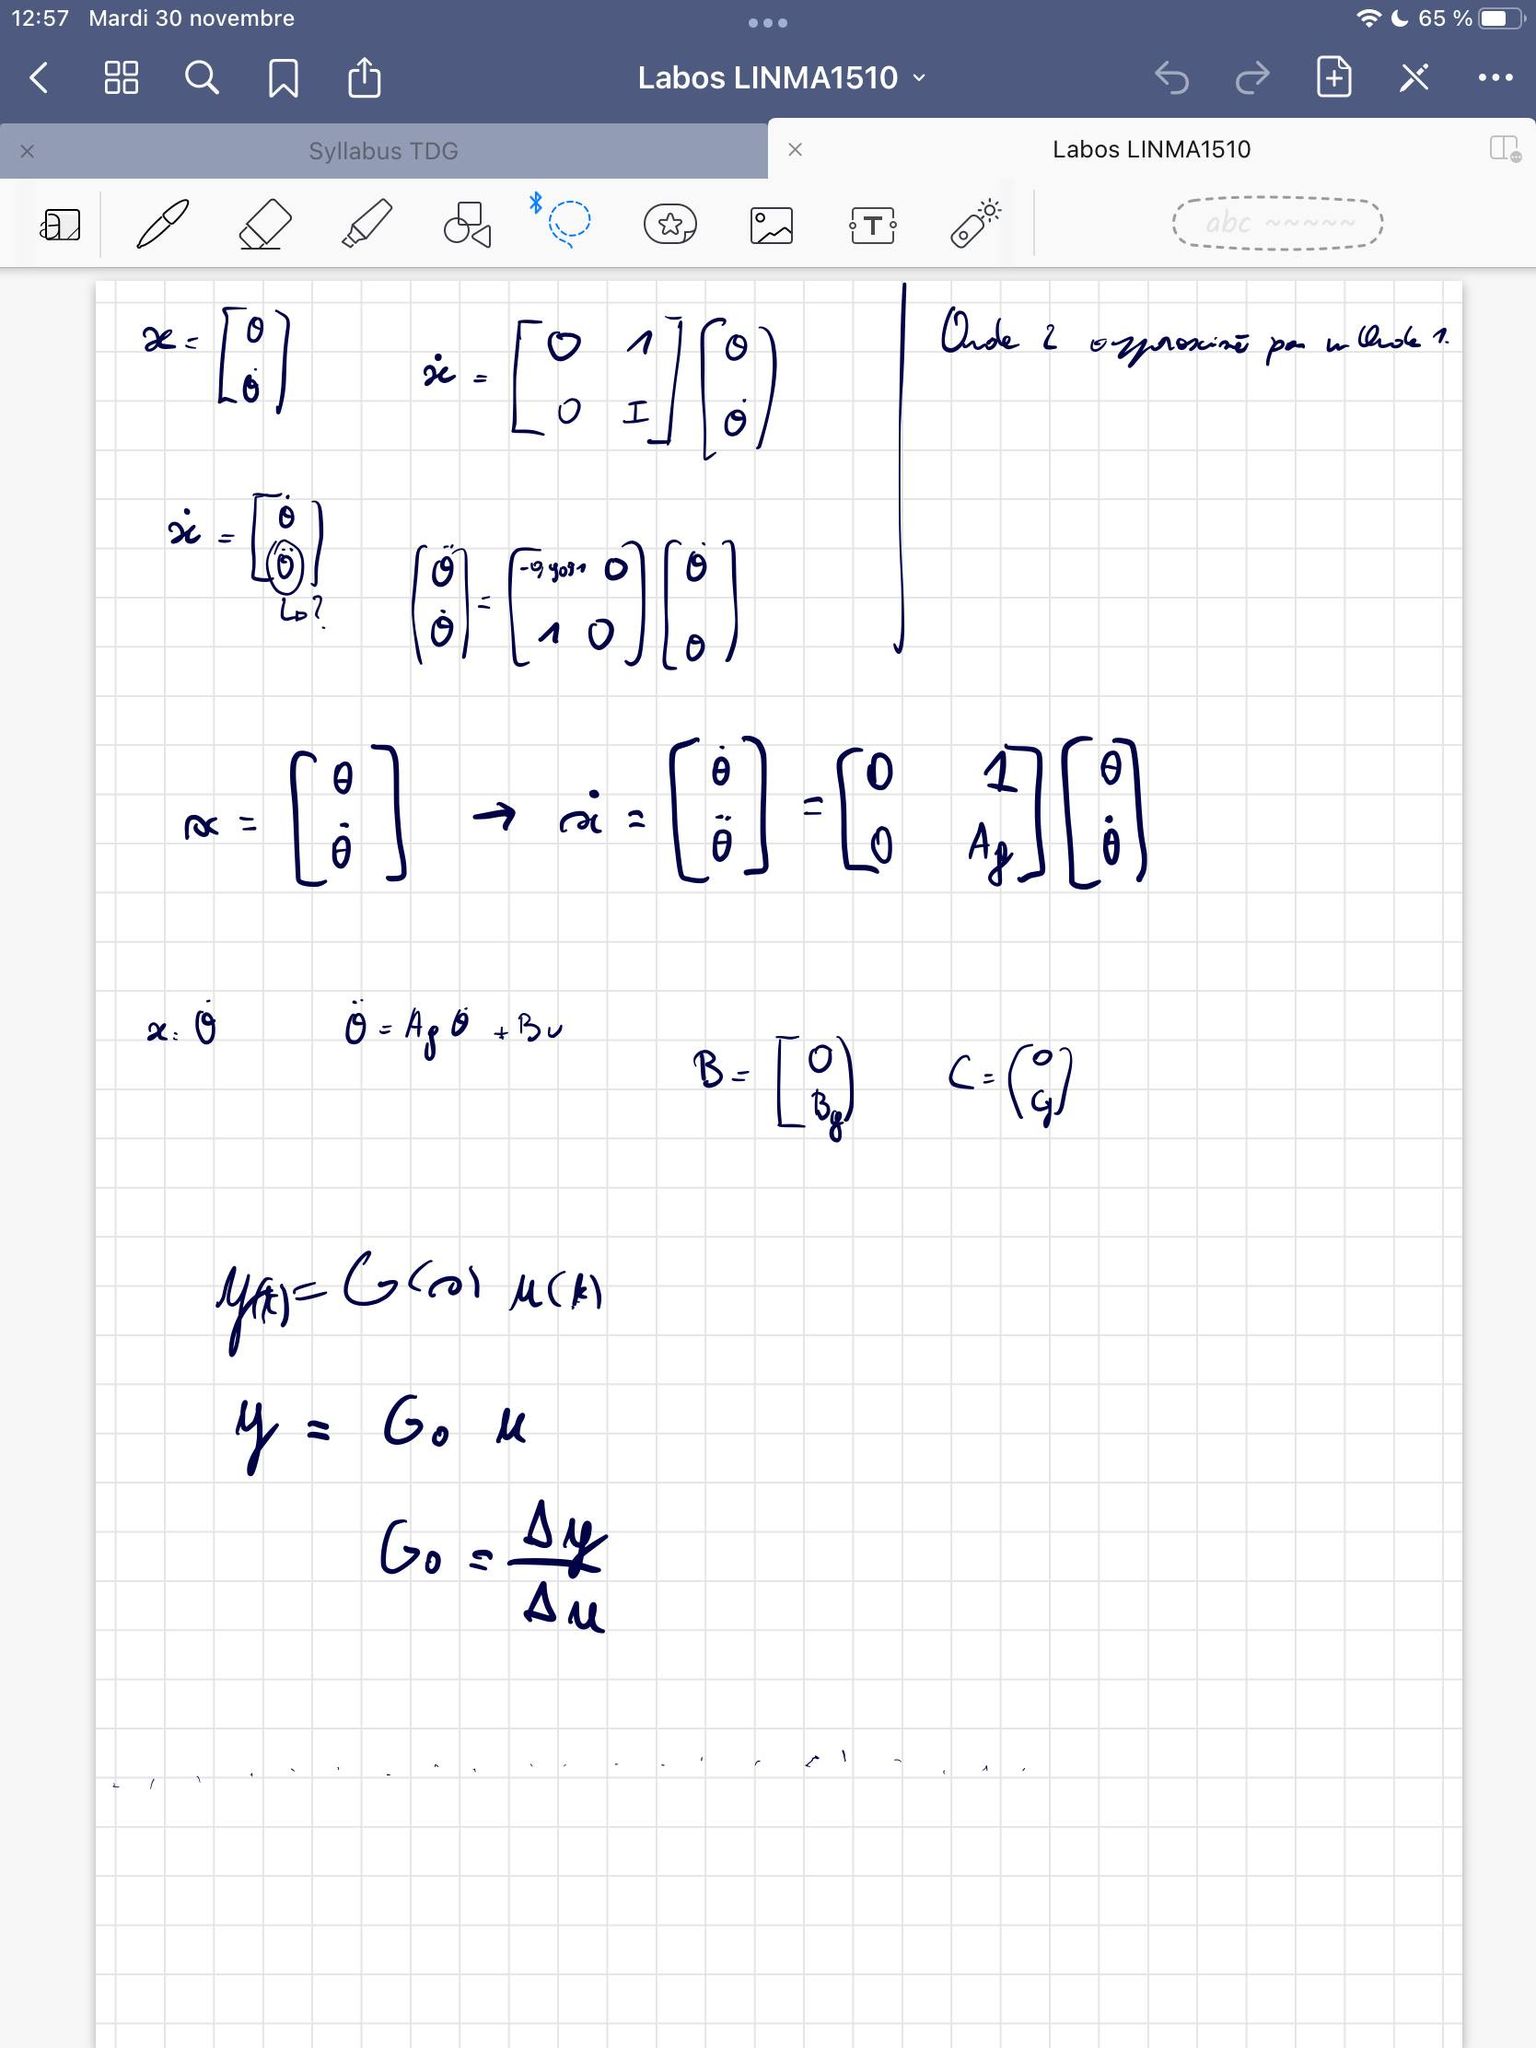 12:57 Mardi 30 novembre
65 %
Labos LINMA1510
Syllabus TDG
Labos LINMA1510
T
abc
x = [θ θ̇]
ẋ = [0 1 0 I] (θ θ̇)
par un Ordre 1.
ẋ = [θ̇ θ̈]
↳ ?
(θ̈ θ̇) = [0 1 0] [θ̇ θ]
x = [θ θ̇] → ẋ = [θ̇ θ̈] = [0 1 0 Ag] [θ θ̇]
x = θ̇ θ̈ = Ag θ̇ + Bu
B = [0 Bg] C = (0 Cg)
y(k) = G(0) u(k)
y = G₀ u
G₀ = Δy / Δu